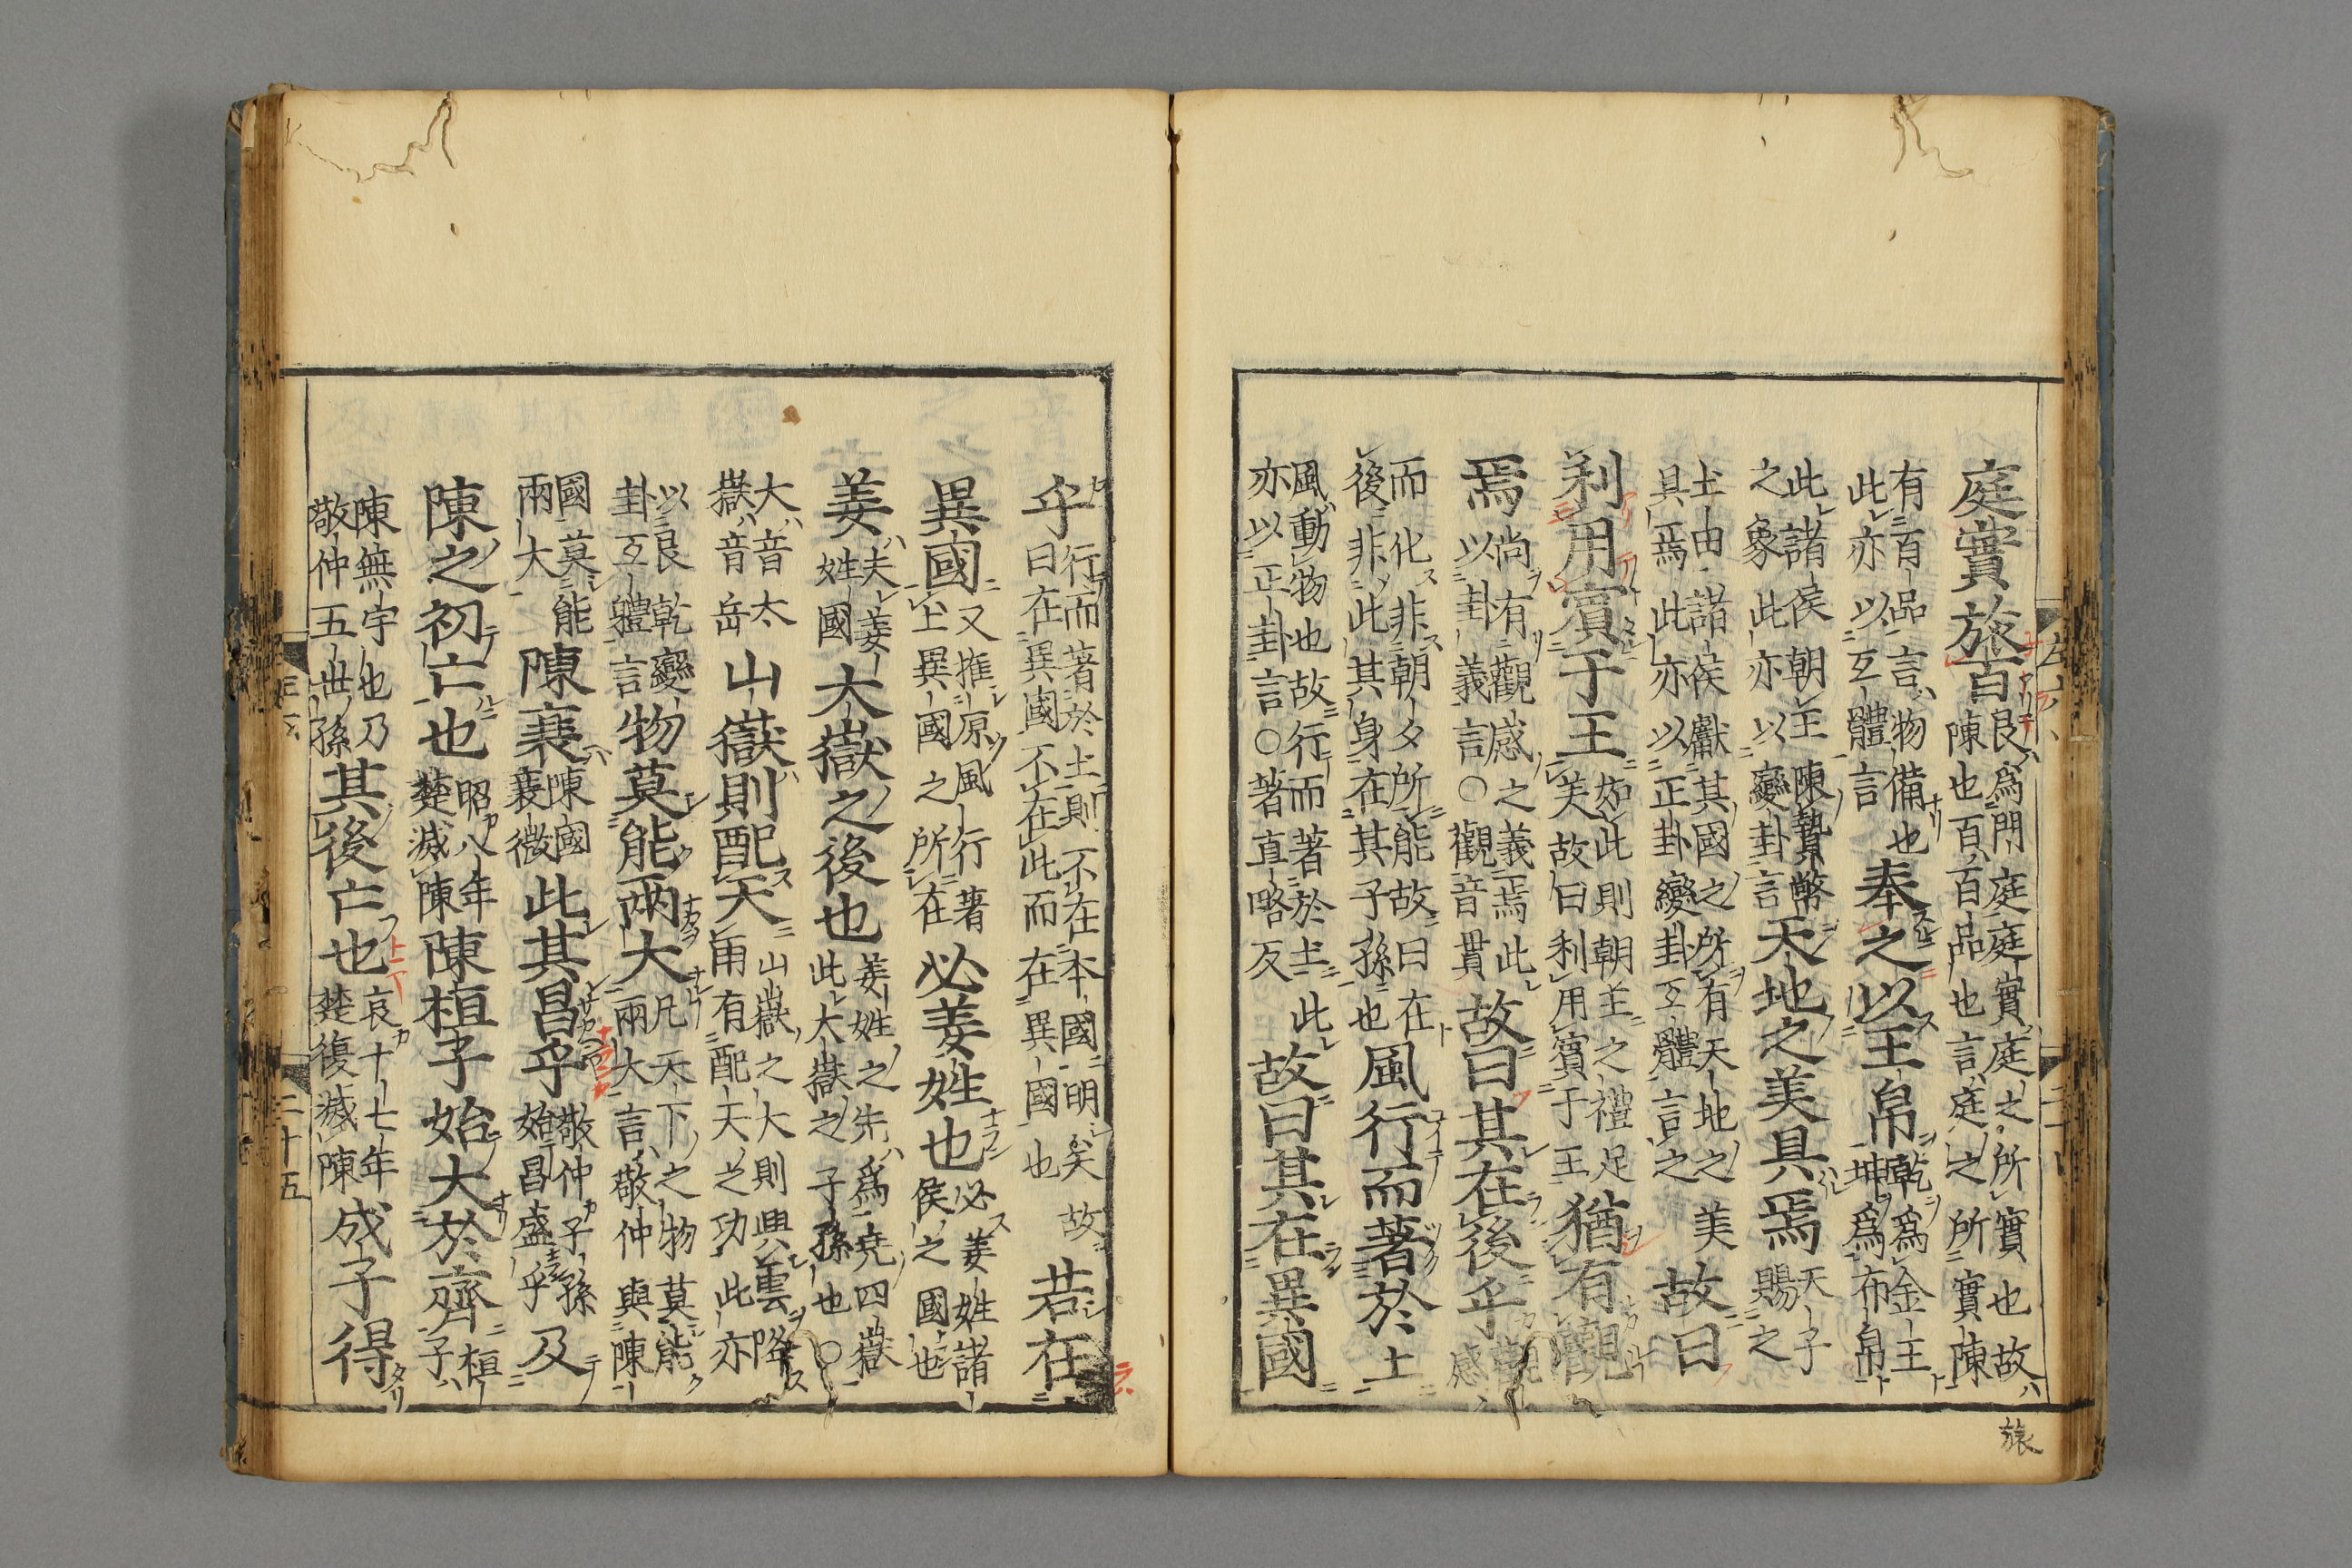 庭實旅百艮爲門庭庭實庭之所實也故陳也百百品也言庭之所實陳
有百品言物備也此亦以互體言奉之以玉帛乾爲金玉坤爲布帛
此諸侯朝王陳贄幣之象此亦以變卦言天地之美具焉天子賜之
土由諸侯獻其國之所有天地之美具焉此亦以正卦變卦互體言之故曰
利用賓于王如此則朝王之禮足矣故曰利用賓于王猶有觀
焉尚有觀感之義焉此以卦義言○觀音貫故曰其在後乎觀感
而化非朝夕所能故曰在後非此其身在其子孫也風行而著於土
風動物也故行而著於土此亦以正卦言○著直略反故曰其在異國
旅
乎行而著於土則不在本國明矣故曰在異國不在此而在異國也若在
異國又推原風行著上異國之所在必姜姓也必姜姓諸侯之國也
姜夫姜姓國大嶽之後也姜姓之先爲堯四嶽此大嶽之子孫也○
大音太嶽音岳山嶽則配天山嶽之大則興雲降雨有配天之功此亦
以艮乾變卦互體言物莫能兩大凡天下之物莫能兩大言敬仲與陳
國莫能兩大陳衰陳國衰微此其昌乎敬仲子孫始昌盛乎及
陳之初亡也昭八年楚滅陳陳桓子始大於齊桓子
陳無宇也乃敬仲五世孫其後亡也哀十七年楚復滅陳成子得
二十五